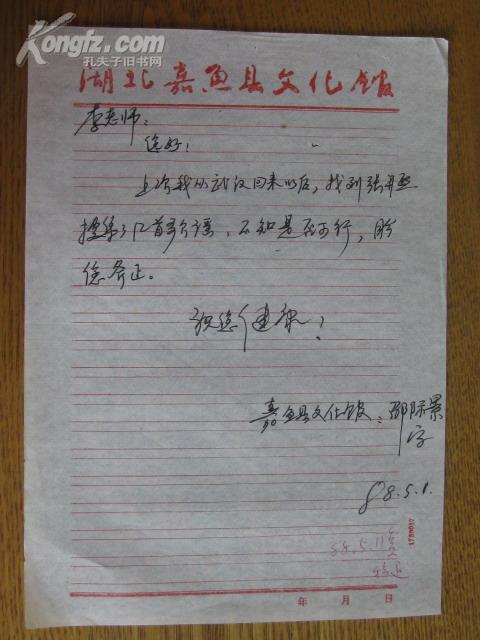 Kongfz.com
孔夫子旧书网
湖北嘉鱼县文化馆
李老师：
您好！
上次我从武汉回来以后，找到张升
搜集了12首歌谣，不知是否可行，盼
您斧正。
祝您健康！
嘉鱼县文化馆：邵际景
88.5.1.
88.5.11
1788037
年 月 日